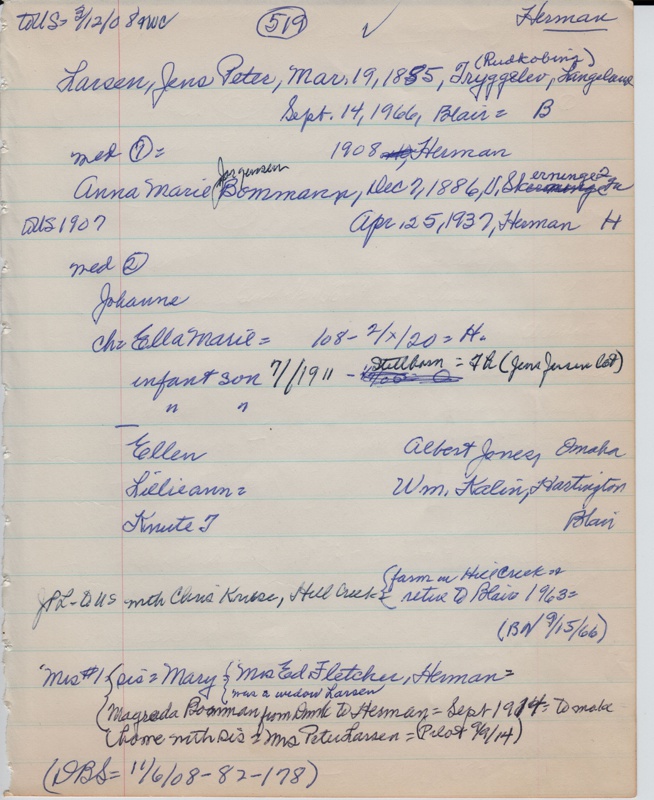 to US = 3/12/08 (519) ✓ Herman
(Rudkobing)
Larsen, Jens Peter, Mar. 19, 1885, Tryggelev, Langeland
Sept. 14, 1966, Blair = B
med ① = 1908 Herman
Jorgensen
Anna Marie Bommann, Dec 7, 1886, V. Skerninge
to US 1907 Apr. 25, 1937, Herman H
med ②
Johanne
ch = Ella Marie = 108 - 2/x/20 = H.
infant son 7/ /1911 - Stillborn = (Jens Jensen lot)
" "
Ellen Albert Jones, Omaha
Lillieann = Wm. Kalin, Hartington
Knute T Blair
JPL - to US with Chris Kruse, Hill Creek = { farm on Hill Creek
retire to Blair 1963 =
(BN 9/15/66)
Mrs #1 { sis = Mary { Mrs Ed Fletcher, Herman =
{ was a widow Larsen
Magreda Bomman from Denmk to Herman = Sept 1914 = to make
home with sis = Mrs Peter Larsen = (Pilot 9/9/14)
(DBS = 11/6/08 - 82 - 178)